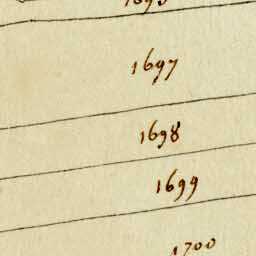 1697
1698
1699
1700